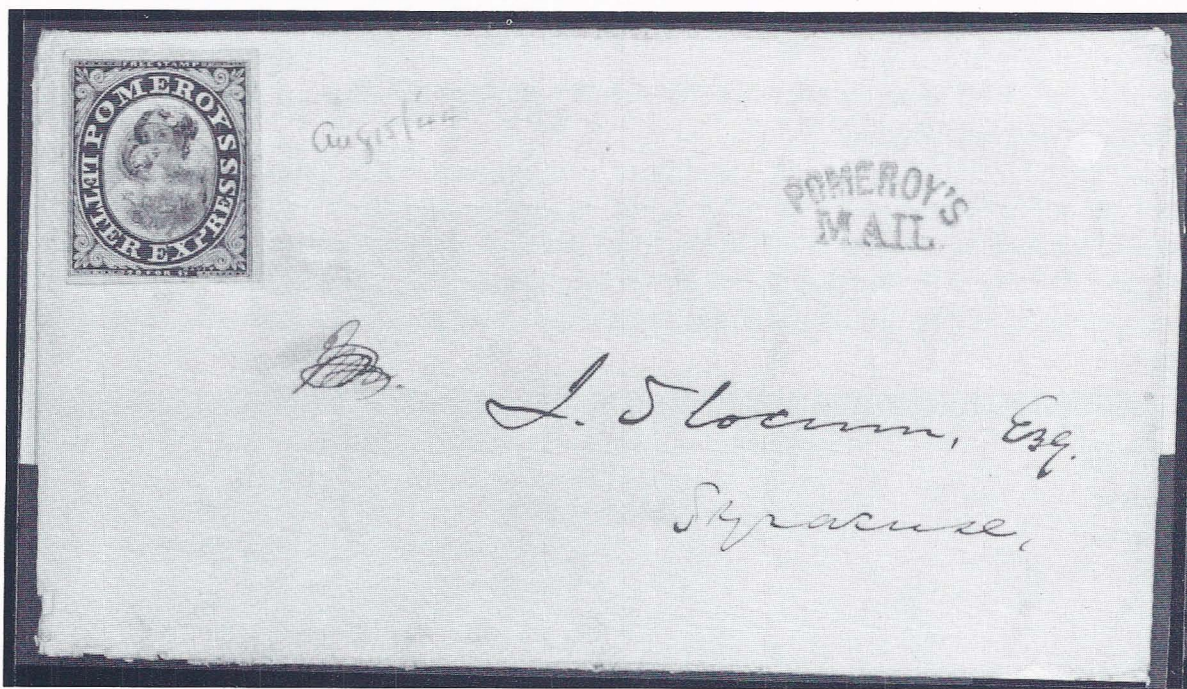 FREE STAMP
POMEROY'S LETTER EXPRESS
Aug 15/44
POMEROY'S
MAIL
J. Slocum, Esq.
Syracuse,